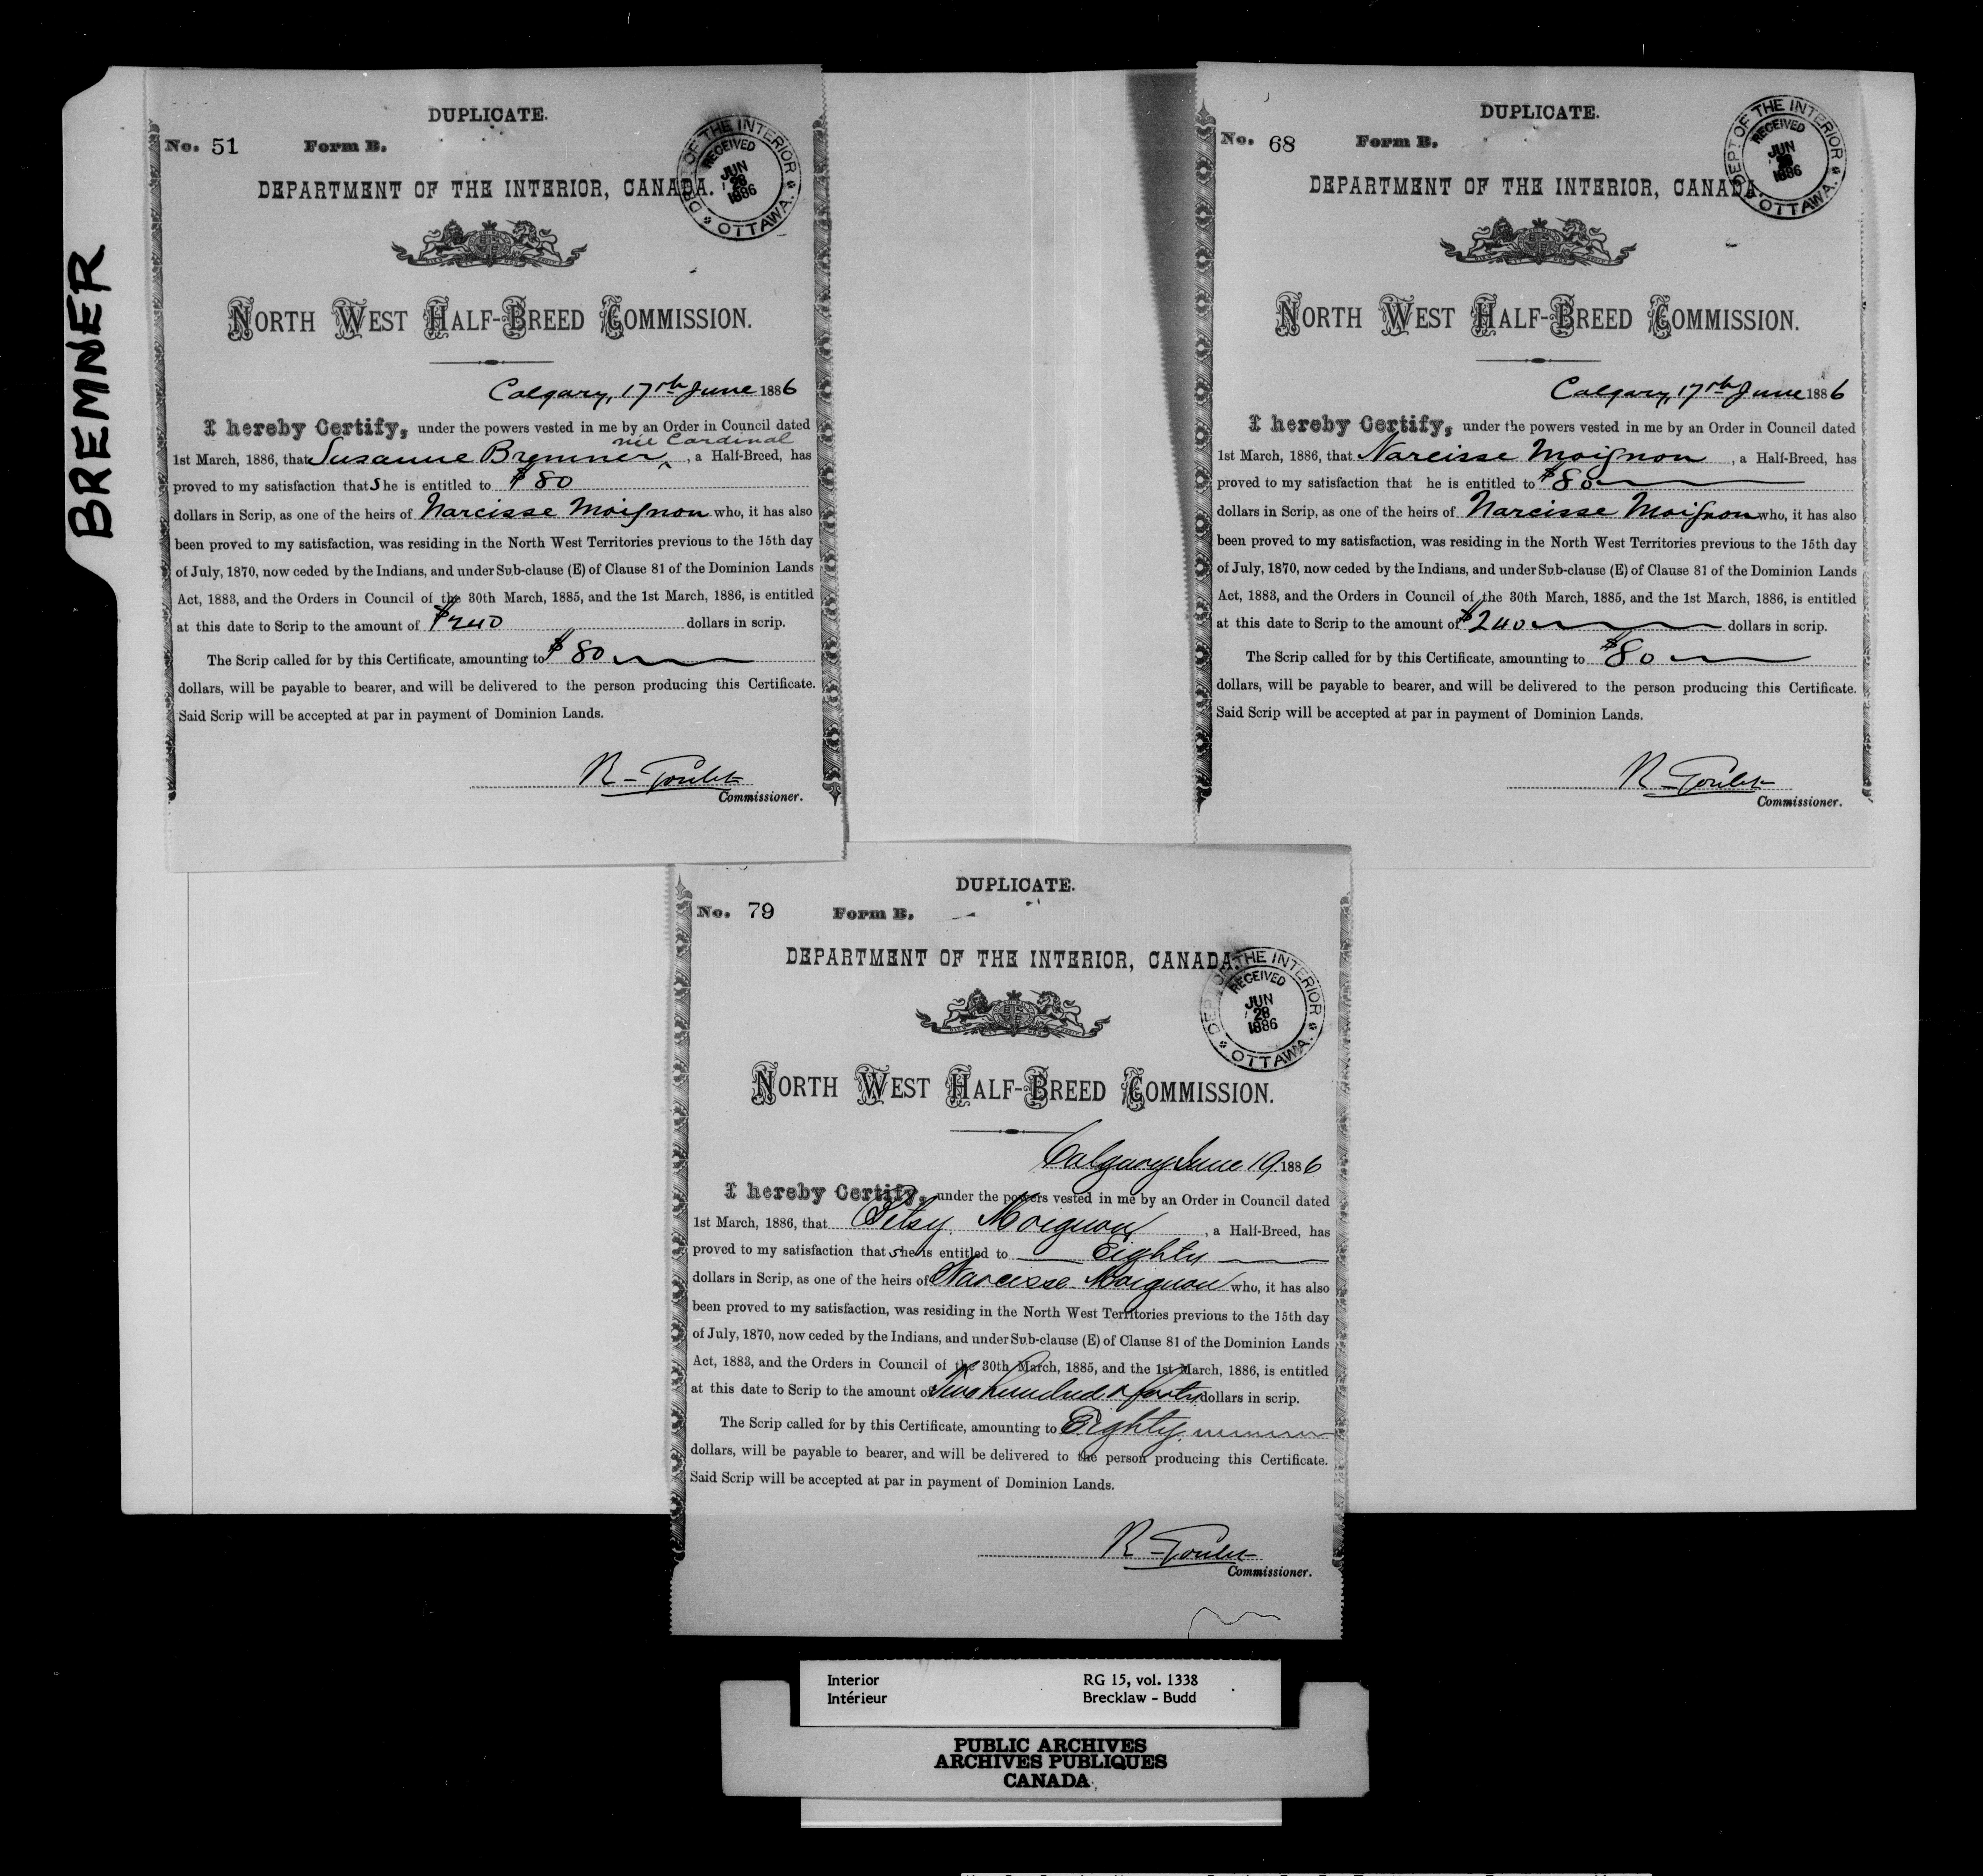 BREMNER
DUPLICATE.
No. 51 Form B.
DEPT OF THE INTERIOR
RECEIVED
JUN
28
1886
OTTAWA.
DEPARTMENT OF THE INTERIOR, CANADA.
NORTH WEST HALF-BREED COMMISSION.
Calgary, 17th June 1886
I hereby Certify, under the powers vested in me by an Order in Council dated
née Cardinal
1st March, 1886, that Susanne Bremner ^, a Half-Breed, has
proved to my satisfaction that She is entitled to $80
dollars in Scrip, as one of the heirs of Narcisse Moignon who, it has also
been proved to my satisfaction, was residing in the North West Territories previous to the 15th day
of July, 1870, now ceded by the Indians, and under Sub-clause (E) of Clause 81 of the Dominion Lands
Act, 1883, and the Orders in Council of the 30th March, 1885, and the 1st March, 1886, is entitled
at this date to Scrip to the amount of $240 dollars in scrip.
The Scrip called for by this Certificate, amounting to $80
dollars, will be payable to bearer, and will be delivered to the person producing this Certificate.
Said Scrip will be accepted at par in payment of Dominion Lands.
R-Goulet
Commissioner.
DUPLICATE.
No. 68 Form B.
DEPT OF THE INTERIOR
RECEIVED
JUN
28
1886
OTTAWA.
DEPARTMENT OF THE INTERIOR, CANADA
NORTH WEST HALF-BREED COMMISSION.
Calgary, 17th June 1886
I hereby Certify, under the powers vested in me by an Order in Council dated
1st March, 1886, that Narcisse Moignon, a Half-Breed, has
proved to my satisfaction that he is entitled to $80
dollars in Scrip, as one of the heirs of Narcisse Moignon who, it has also
been proved to my satisfaction, was residing in the North West Territories previous to the 15th day
of July, 1870, now ceded by the Indians, and under Sub-clause (E) of Clause 81 of the Dominion Lands
Act, 1883, and the Orders in Council of the 30th March, 1885, and the 1st March, 1886, is entitled
at this date to Scrip to the amount of $240 dollars in scrip.
The Scrip called for by this Certificate, amounting to $80
dollars, will be payable to bearer, and will be delivered to the person producing this Certificate.
Said Scrip will be accepted at par in payment of Dominion Lands.
R-Goulet
Commissioner.
DUPLICATE.
No. 79 Form B.
DEPT OF THE INTERIOR
RECEIVED
JUN
28
1886
OTTAWA.
DEPARTMENT OF THE INTERIOR, CANADA.
NORTH WEST HALF-BREED COMMISSION.
Calgary June 19 1886
I hereby Certify, under the powers vested in me by an Order in Council dated
1st March, 1886, that Betsy Moignon, a Half-Breed, has
proved to my satisfaction that she is entitled to Eighty
dollars in Scrip, as one of the heirs of Narcisse Moignon who, it has also
been proved to my satisfaction, was residing in the North West Territories previous to the 15th day
of July, 1870, now ceded by the Indians, and under Sub-clause (E) of Clause 81 of the Dominion Lands
Act, 1883, and the Orders in Council of the 30th March, 1885, and the 1st March, 1886, is entitled
at this date to Scrip to the amount of Two hundred & forty dollars in scrip.
The Scrip called for by this Certificate, amounting to Eighty
dollars, will be payable to bearer, and will be delivered to the person producing this Certificate.
Said Scrip will be accepted at par in payment of Dominion Lands.
R-Goulet
Commissioner.
Interior RG 15, vol. 1338
Intérieur Brecklaw - Budd
PUBLIC ARCHIVES
ARCHIVES PUBLIQUES
CANADA